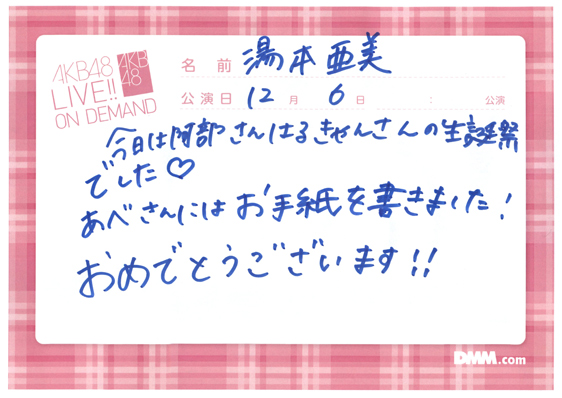 AKB48
LIVE!!
ON DEMAND
AKB
48
名前 湯本亜美
公演日 12月 6日 : 公演
今日は阿部さんはるきゃんさんの生誕祭
でした♡
あべさんにはお手紙を書きました!
おめでとうございます!!
DMM.com